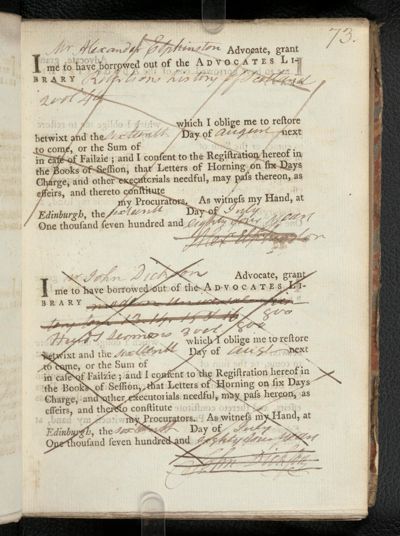 73.
I Mr Alexander Elphinston Advocate, grant
me to have borrowed out of the ADVOCATES LI-
BRARY Robertsons history of Scotland
2 vol 4to
which I oblige me to reſtore
betwixt and the sixteenth Day of August next
to come, or the Sum of
in caſe of Failzie ; and I conſent to the Regiſtration hereof in
the Books of Seſſion, that Letters of Horning on ſix Days
Charge, and other executorials needful, may paſs thereon, as
effeirs, and thereto conſtitute
my Procurators. As witneſs my Hand, at
Edinburgh, the sixteenth Day of July
One thouſand ſeven hundred and eighty four years
Alexr Elphinston
I Mr John Dickson Advocate, grant
me to have borrowed out of the ADVOCATES LI-
BRARY
14 15 & 16 8vo
sermons 2 vol 8vo
which I oblige me to reſtore
betwixt and the sixteenth Day of August next
to come, or the Sum of
in caſe of Failzie ; and I conſent to the Regiſtration hereof in
the Books of Seſſion, that Letters of Horning on ſix Days
Charge, and other executorials needful, may paſs hereon, as
effeirs, and thereto conſtitute
my Procurators. As witneſs my Hand, at
Edinburgh, the sixteenth Day of July
One thouſand ſeven hundred and eighty four years
John Dickson